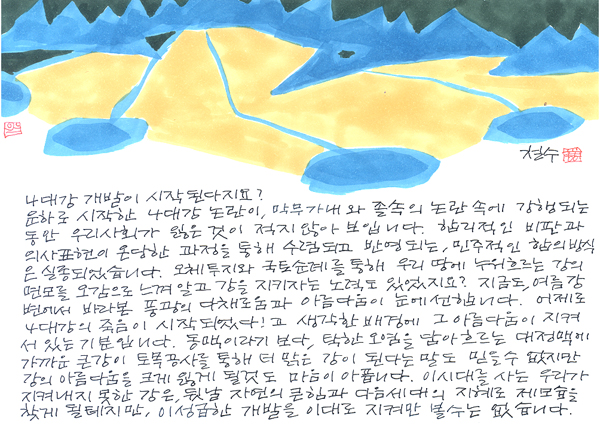 철수
4대강 개발이 시작 된다지요?
운하로 시작한 4대강 논란이, 막무가내와 졸속의 논란 속에 강행되는
동안 우리사회가 잃은 것이 적지 않아 보입니다. 합리적인 비판과
의사표현이 온당한 과정을 통해 수렴되고 반영되는, 민주적인 합의방식
은 실종되었습니다. 오체투지와 국토순례를 통해 우리 땅에 누워흐르는 강의
면모를 오감으로 느껴 알고 강을 지키자는 노력도 있었지요? 지금도, 여름강
변에서 바라본 풍광의 다채로움과 아름다움이 눈에 선합니다. 어제로
4대강의 죽음이 시작되었다! 고 생각한 배경에 그 아름다움이 지켜
서 있는 기분입니다. 동맥이라기 보다, 탁한 오염을 담아 흐르는 대정맥에
가까운 큰강이 토목공사를 통해 더 맑은 강이 된다는 말도 믿을수 없지만
강의 아름다움을 크게 잃게 될것도 마음이 아픕니다. 이시대를 사는 우리가
지켜내지 못한 강은, 뒷날 자연의 큰힘과 다음세대의 지혜로 제모습을
찾게 될테지만, 이 성급한 개발을 이대로 지켜만 볼수는 없습니다.